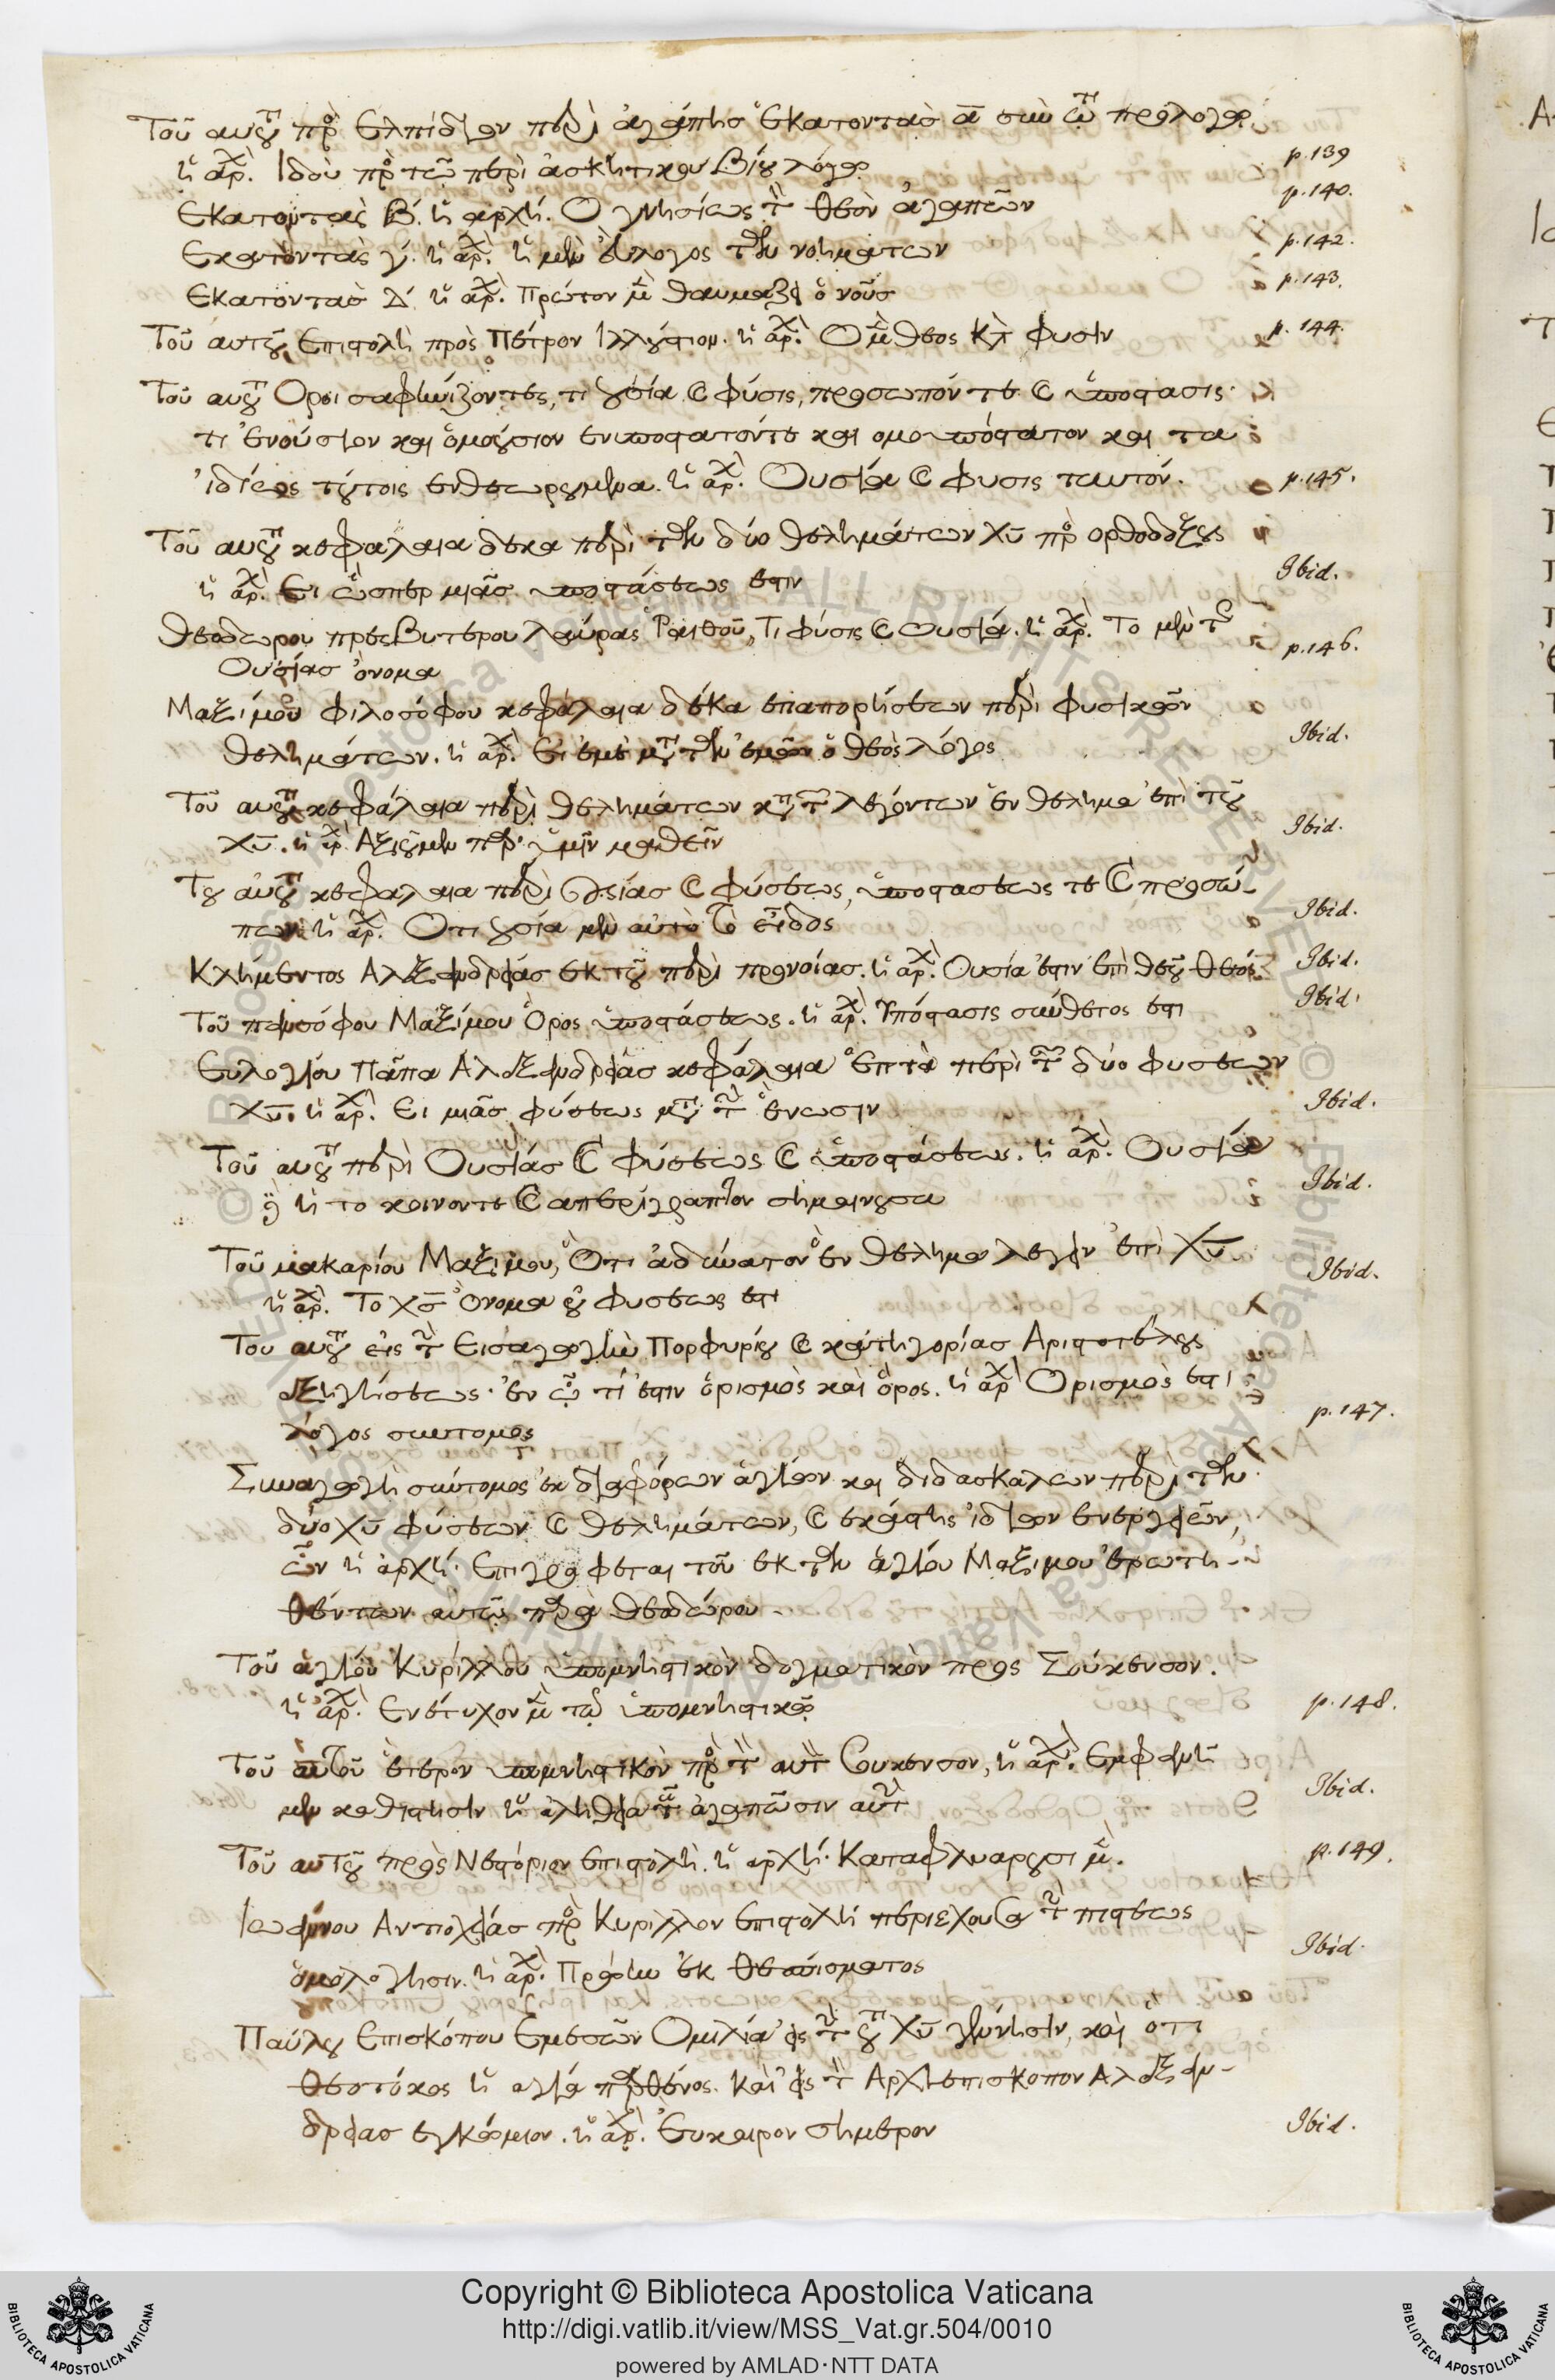 Τοῦ αυτοῦ πρὸς Ελπίδιον περὶ ἀγάπης Ἑκατοντὰς α̅ σὺν τῷ προλόγῳ
ἧ ἀρχὴ. Ιδοὺ πρὸς τῷ περὶ ἀσκητικου Βίου λόγῳ p.139
Εκατοντὰς Β. ἧ αρχή. Ο γνησίως τὸν θεὸν ἀγαπῶν p.140.
Εκατοντὰς γ. ἧ ἀρχὴ. ἡ μὲν εὔλογος τῶν νοημάτων p.142.
Εκατοντὰς Δ. ἧ ἀρχὴ. Πρώτον μὲν θαυμάζει ὁ νοῦς p.143.
Τοῦ αυτοῦ Επιστολὴ πρὸς Πέτρον Ιλλούστριον. ἧ ἀρχὴ. Ο μὲν θεος κατὰ φυσιν p. 144.
Τοῦ αυτοῦ Οροι σαφηνίζοντες, τι οὐσία καὶ φύσις, προσωπόν τε καὶ ὑποστασις.
τι ἐνούσιον και ὁμοούσιον ενυποστατόντε και ομοϋπόστατον και τα
ἰδίως τούτοις ενθεωρουμενα. ἧ ἀρχὴ. Ουσία καὶ φυσις ταυτόν. p.145.
Τοῦ αυτοῦ κεφαλαια δεκα περὶ τῶν δύο θελημάτων Χυ̅ πρὸς ορθοδόξους
ἧ ἀρχὴ. Ει ὥσπερ μιᾶς υποστάσεως εστιν Ibid.
Θεοδωρου πρεσΒυτερου λαύρας Ῥαιθοῦ, Τι φύσις καὶ Ουσία. ἧ ἀρχὴ. Το μὲν τῆς
Ουσίας ὄνομα p.146.
Μαξίμου φιλοσόφου κεφάλαια δέκα επαπορήσεων περὶ φυσικῶν
θελημάτων. ἧ ἀρχὴ. Ει ἐμὲ μετὰ τῶν ἐμῶν ὁ θεὸς λόγος Ibid.
Τοῦ αυτοῦ κεφάλαια περὶ θελημάτων κατὰ τῶν λεγόντων ἓν θελημα ἐπὶ τοῦ
Χυ̅. ἧ ἀρχὴ. Αξιοῦμεν παρ' ὑμῖν μαθεῖν Ibid.
Του αὐτοῦ κεφαλαια περὶ οὐσίας καὶ φύσεως, ὑποστασεως τε καὶ προσώ-
πων. ἧ ἀρχὴ. Οτι οὐσία μὲν αὐτὸ τὸ εἶδος Ibid.
Κλήμεντος Αλεξανδρείας εκ τοῦ περὶ προνοίας. ἧ ἀρχὴ. Ουσία ἐστιν ἐπὶ θεοῦ θεός Ibid.
Τοῦ πανσόφου Μαξίμου Ὅρος ὑποστάσεως. ἧ ἀρχὴ. Υπόστασις σύνθετος εστι Ibid.
Ευλογίου Πάπα Αλεξανδρείας κεφάλαια ἑπτὰ περὶ τῶν δύο φυσεων
Χυ̅. ἧ ἀρχὴ. Ει μιᾶς φύσεως μετὰ τὴν ἕνωσιν Ibid.
Τοῦ αυτοῦ περὶ Ουσίας καὶ Φύσεως καὶ ὑποστάσεως. ἧ ἀρχὴ. Ουσία
ἡ το κοινοντε καὶ απερίγραπτον σημαινουσα Ibid.
Τοῦ μακαρίου Μαξίμου, Ὅτι ἀδύνατον ἓν θελημα λεγειν ἐπὶ Χυ̅ Ibid.
ἧ ἀρχὴ. Το Χσ̅ ὄνομα οὐ φυσεως εστι
Του αυτοῦ εἰς τὴν Εισαγωγὴν Πορφυρίου καὶ κατηγορίας Αριστοτέλους
εξηγήσεως. ἐν ᾧ τί ἐστιν ὁρισμὸς καὶ ὅρος. ἧ ἀρχὴ Ορισμὸς εστι
λόγος συντομος p.147.
Συναγωγὴ σύντομος ἐκ διαφόρων ἁγίων και διδασκαλων περὶ τῶν
δύο Χυ̅ φύσεων καὶ θελημάτων, καὶ εκάστης ἰδίων ενεργειῶν,
ὧν ἡ ἀρχή. Επιγράφεται τοῦ εκ τῶν ἁγίου Μαξίμου ἐρωτη-
θέντων αὐτῷ παρὰ θεοδώρου.
Τοῦ ἁγίου Κυρίλλου ὑπομνηστικὸν δογματικὸν προς Σούκενσον.
ἧ ἀρχὴ. Ενέτυχον μὲν τῷ ὑπομνηστικῷ p.148.
Τοῦ αὐτοῦ ἕτερον υπομνηστικὸν πρὸς τὸν αυτὸν Σουκενσον, ἧ ἀρχὴ. Εμφανῆ
μὲν καθιστησιν ἡ ἀλήθεια τοῖς ἀγαπῶσιν αυτὴν Ibid.
Τοῦ αυτοῦ πρὸς Νεστόριον επιστολὴ. ἧ αρχή. Καταφλυαρουσι μὲν. p.149.
Ιωάννου Αντιοχείας πρὸς Κυριλλον επιστολὴ περιεχουσα τῆς πιστεως
ὁμολόγησιν. ἧ ἀρχὴ. Πρώην ἐκ θεσπίσματος Ibid.
Παύλου Επισκόπου Εμεσῶν Ομιλία εἰς τὴν τοῦ Χυ̅ γέννησιν, καὶ ὅτι
Θεοτόκος ἡ αγία παρθένος. καὶ εἰς τὸν Αρχιεπισκοπον Αλεξαν-
δρείας εγκώμιον. ἧ ἀρχὴ. Ἔυκαιρον σήμερον Ibid.
Copyright © Biblioteca Apostolica Vaticana
http://digi.vatlib.it/view/MSS_Vat.gr.504/0010
powered by AMLAD·NTT DATA
BIBLIOTECA APOSTOLICA VATICANA
BIBLIOTECA APOSTOLICA VATICANA